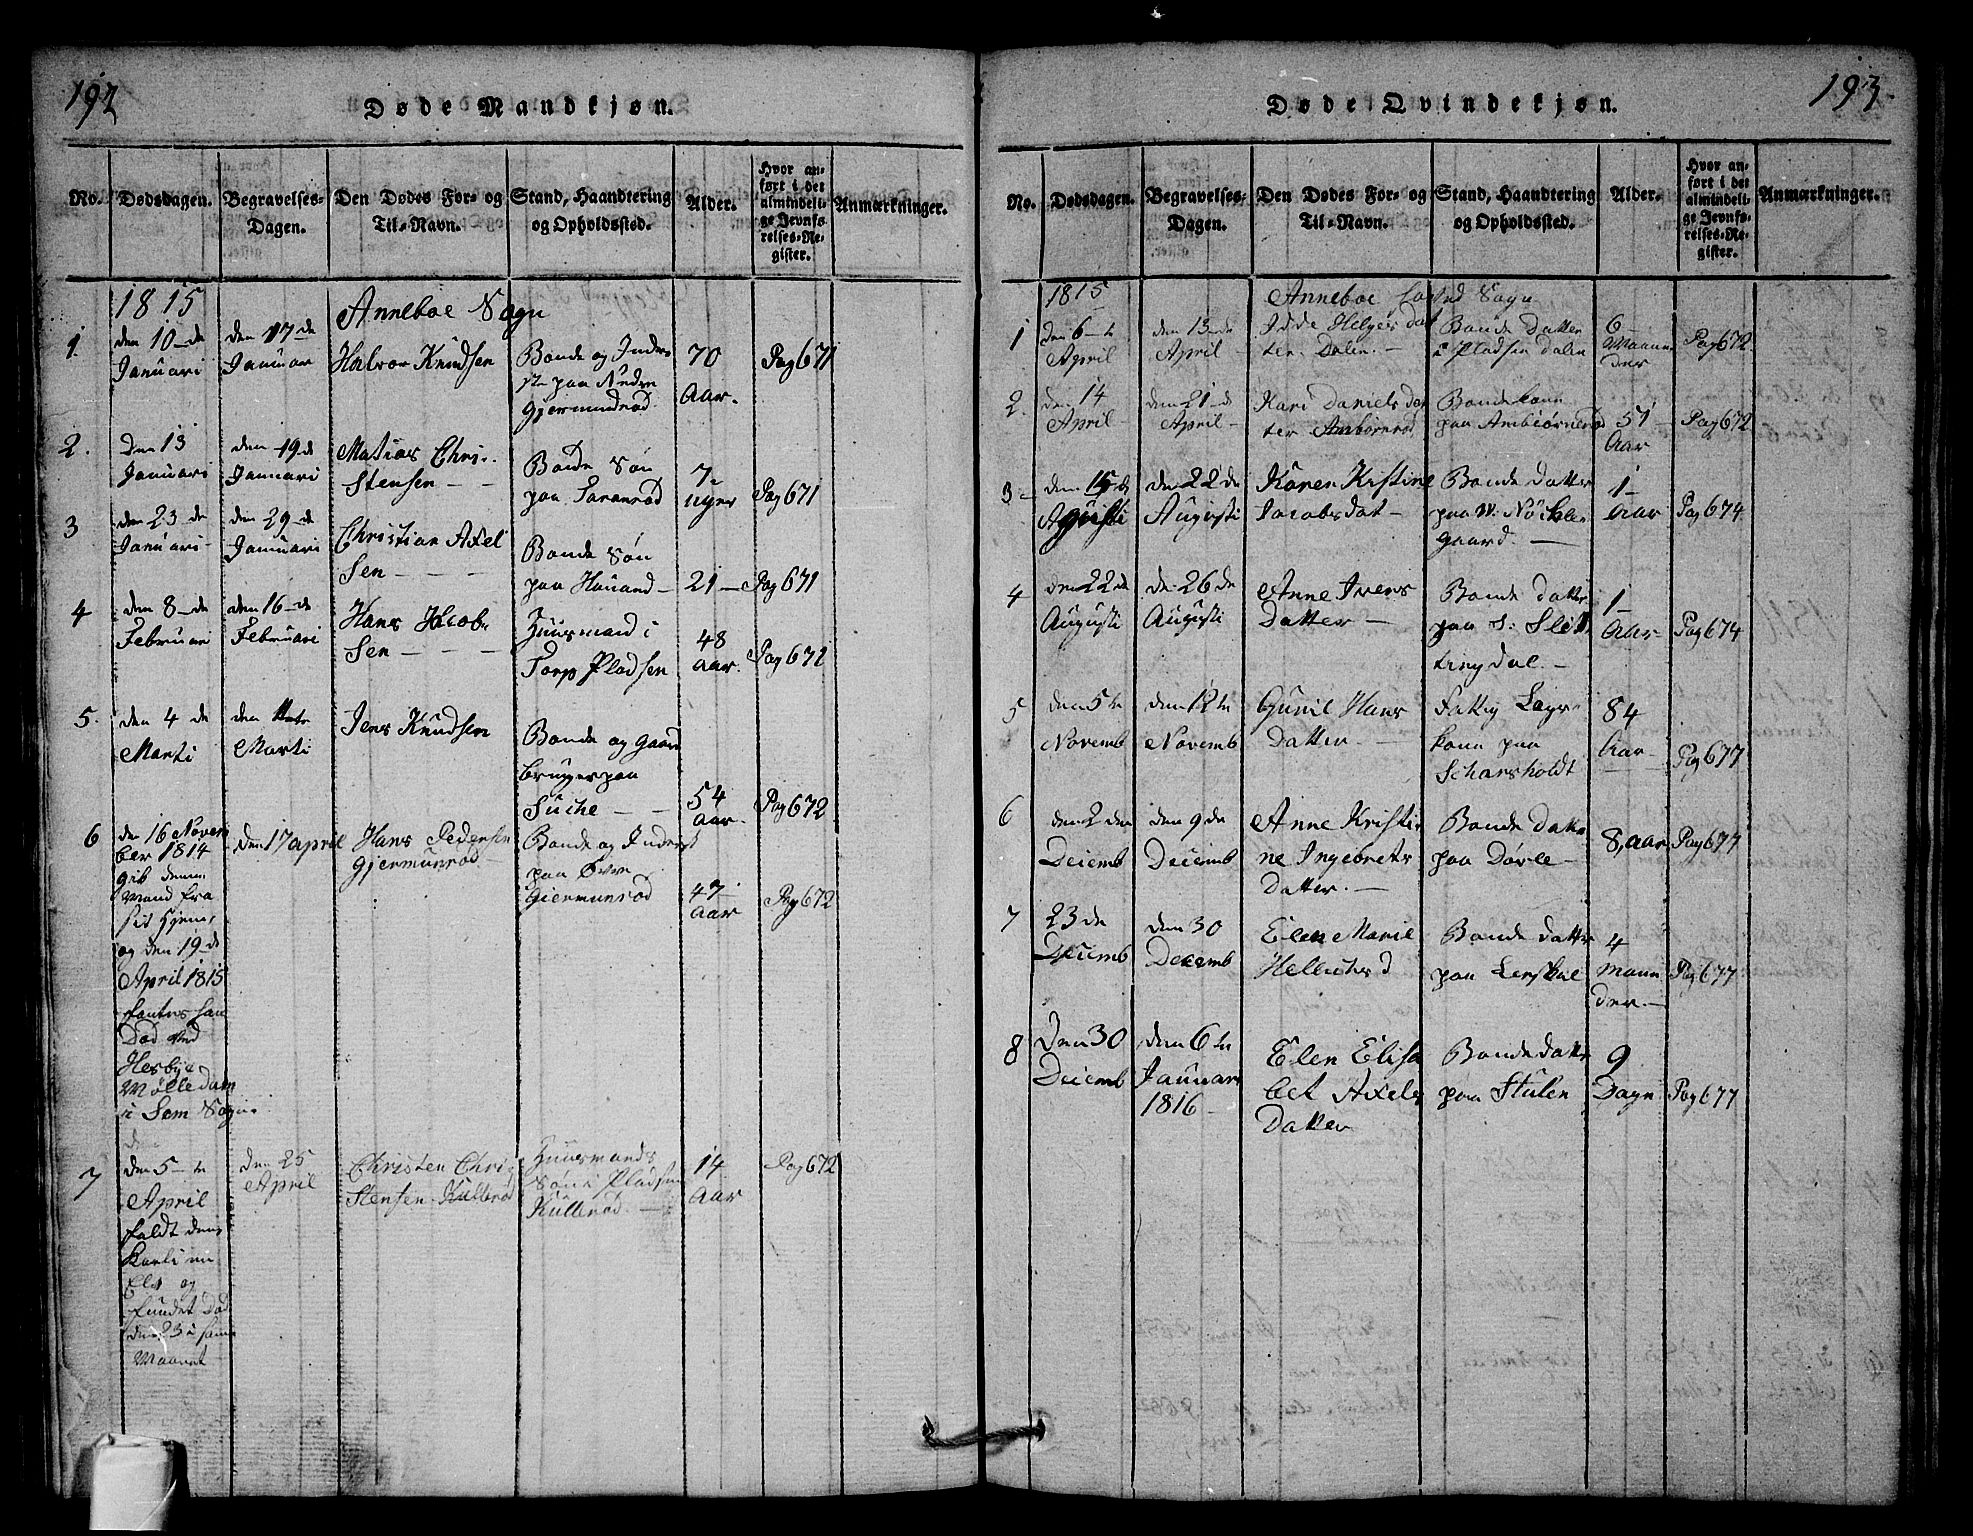 192
Døde Mandkjøn.
No.
Dødsdagen.
Begravelses-
Dagen.
Den Dødes For- og
Til-Navn.
Stand, Haandtering
og Opholdssted.
Alder.
Hvor an-
ført i det
almindeli-
ge Jevnfø-
relses-Re-
gister.
Anmærkninger.
1815
Anneboe Sogn
1.
den 10-de
Januari
den 17de
Januar
Halvor Knudsen
Bonde og Inders
te paa Nedre
Gjermundrød
70
Aar.
Pag 671
2.
Den 13
Januari
den 19de
Januari
Matias Chri-
stensen
Bonde Søn
paa
7-
uger
Pag 671
3
den 23 de
Januari
den 29-de
Januari
Christian Axel
Sen
Bonde Søn
paa Hauand
21
Pag 671
4
den 8-de
Februari
den 16-de
Februari
Hans Jacob
Sen
Huusmand i
Torp Pladsen
48
Aar.
Pag 672
5.
den 4 de
Marti
den
Marti
Jens Knudsen
Bonde og Gaard
bruger paa
Suche
54
Aar.
Pag 672
6
den 16 Novem
ber 1814
gik denne
Mand fra
sit Hjem,
og den 19-de
April 1815
fantes han
Død ved
Hesbye
Mølle dam
i Sem Sogn.
den 17 april
Hans Pedersen
Gjermunrød
Bonde og Inderst
paa Øvre
Giermunrød
47
Aar
Pag 672
7
den 5-te
April
faldt denne
Karl i en
Elv og
fundet Død
den 23 i samme
Maanet
den 25
April
Christen Chri
stensen Kullerød
Huusmands
Søn i Pladsen
Kullerød.
14
Aar
Pag 672
193
Døde Qvindekjøn.
No.
Dødsdagen.
Begravelses-
Dagen.
Den Dødes For- og
Til-Navn.
Stand, Haandtering
og Opholdssted.
Alder.
Hvor an-
ført i det
almindeli-
ge Jevnfø-
relses-Re-
gister.
Anmærkninger.
1815
Anneboe Sogn
1
den 6-te
April
den 13-de
April
Idde Helgersdat
ter. Dalen.
Bonde Datter
i Pladsen Dalen
6-
Maane
der
Pag 672
2.
den 14
April
den 21-de
April
Kari Daniels dat
ter Ambiørnrød
Bondekone
paa Ambiørnerød
51
Aar
Pag 672
3-
den 15 de
Agusti
den 22 de
Augusti
Karen Kistine
Jacobsdat-
Bonde datter
paa N: Nøckle
gaard.
1-
Aar
Pag 674
4
den 22 de
Augusti
de 26 de
Augusti
Anne Ivers
Datter
Bonde datter
paa S: Slet
tingdal.
1-
Aar
Pag 674
5
den 5te
Novemb
den 12te
Novemb
Gunil Hans
Datter
Fattig Lægs
kone paa
Scharsholdt
84
Aar
Pag 677
6
den 2 den
Deiemb
den 9de
Deiemb
Anne Kristi
ne Ingebrets
Datter.
Bonde Datter
paa Dørle
8, aar
Pag 677
7
23 de
Deiemb
den 30
Decemb
Elen Marie
Bonde datter
paa Lerskal
4
Maan
der
Pag 677
8
Den 30
Deiemb
den 6te
Januari
1816
Elen Elisa
bet Axels
Datter
Bonde datter
paa Stulen
9
Dage
Pag 677